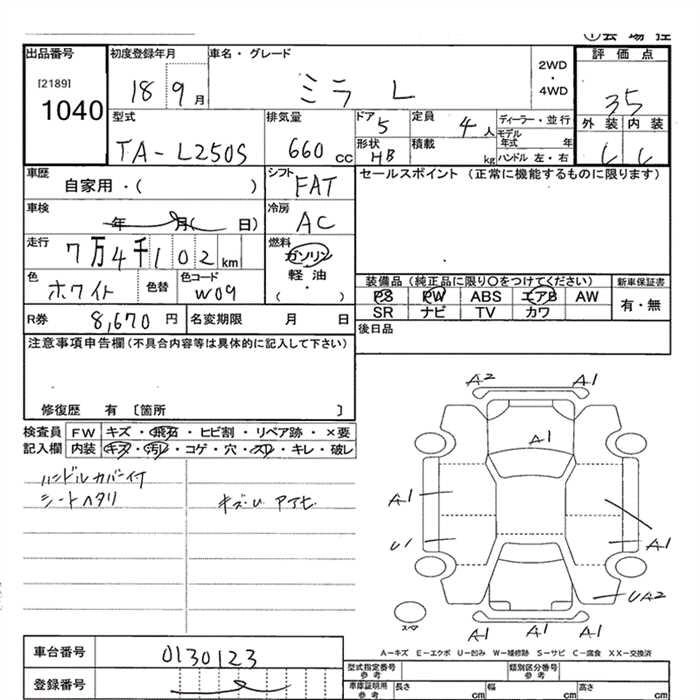 出品番号
[2189]
1040
初度登録年月
18 9月
車名・グレード
ミラ L
2WD
・
4WD
評価点
35
外装 内装
C C
型式
TA-L250S
排気量
660 cc
ドア
5
形状
HB
定員
4人
積載
kg
ディーラー・並行
モデル
年式 年
ハンドル 左・右
車歴
自家用・( )
シフト
FAT
セールスポイント (正常に機能するものに限ります)
車検
年 月( 日)
冷房
AC
走行
7万4千102 km
燃料
ガソリン
・
軽油
( )
色
ホワイト
色替
色コード
W09
装備品 (純正品に限り〇をつけてください)
PS PW ABS エアB AW
SR ナビ TV カワ
新車保証書
有・無
R券 8,670 円
名変期限 月 日
後日品
注意事項申告欄 (不具合内容等は具体的に記入して下さい)
修復歴 有 〔箇所 〕
検査員
記入欄
FW キズ・飛石・ヒビ割・リペア跡・×要
内装 キズ・汚レ・コゲ・穴・スレ・キレ・破レ
ハンドルカバー付
シートヘタリ
A2 A1
A1
A1
U1
A1
UA2
A1 A1 A1
A－キズ E－エクボ U－凹み W－補修跡 S－サビ C－腐食 XX－交換済
車台番号
0130123
登録番号
型式指定番号
参考
類別区分番号
参考
車庫証明用
参考
長さ cm
幅 cm
高さ cm